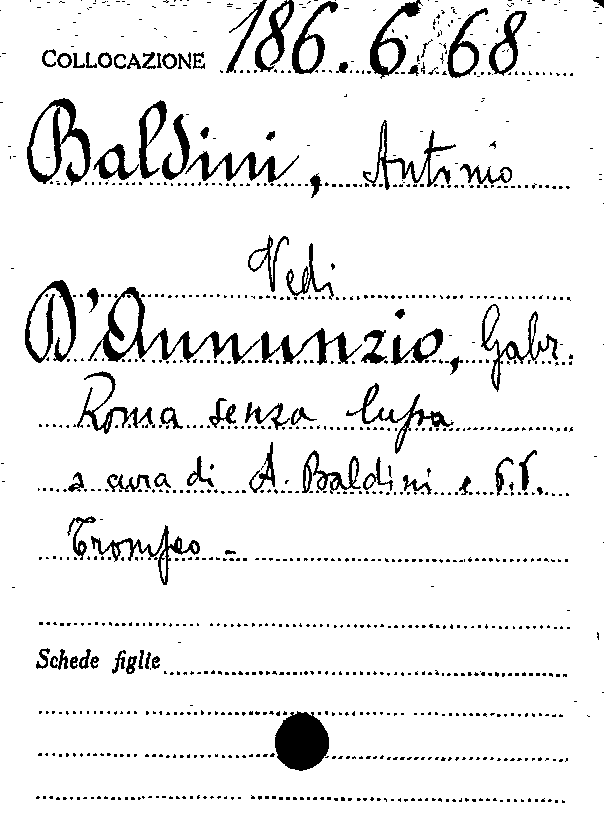 COLLOCAZIONE 186.6.68
Baldini, Antonio
Vedi
D'Annunzio, Gabr.
Roma senza lupa
a cura di A. Baldini e P.P.
Trompeo -
Schede figlie